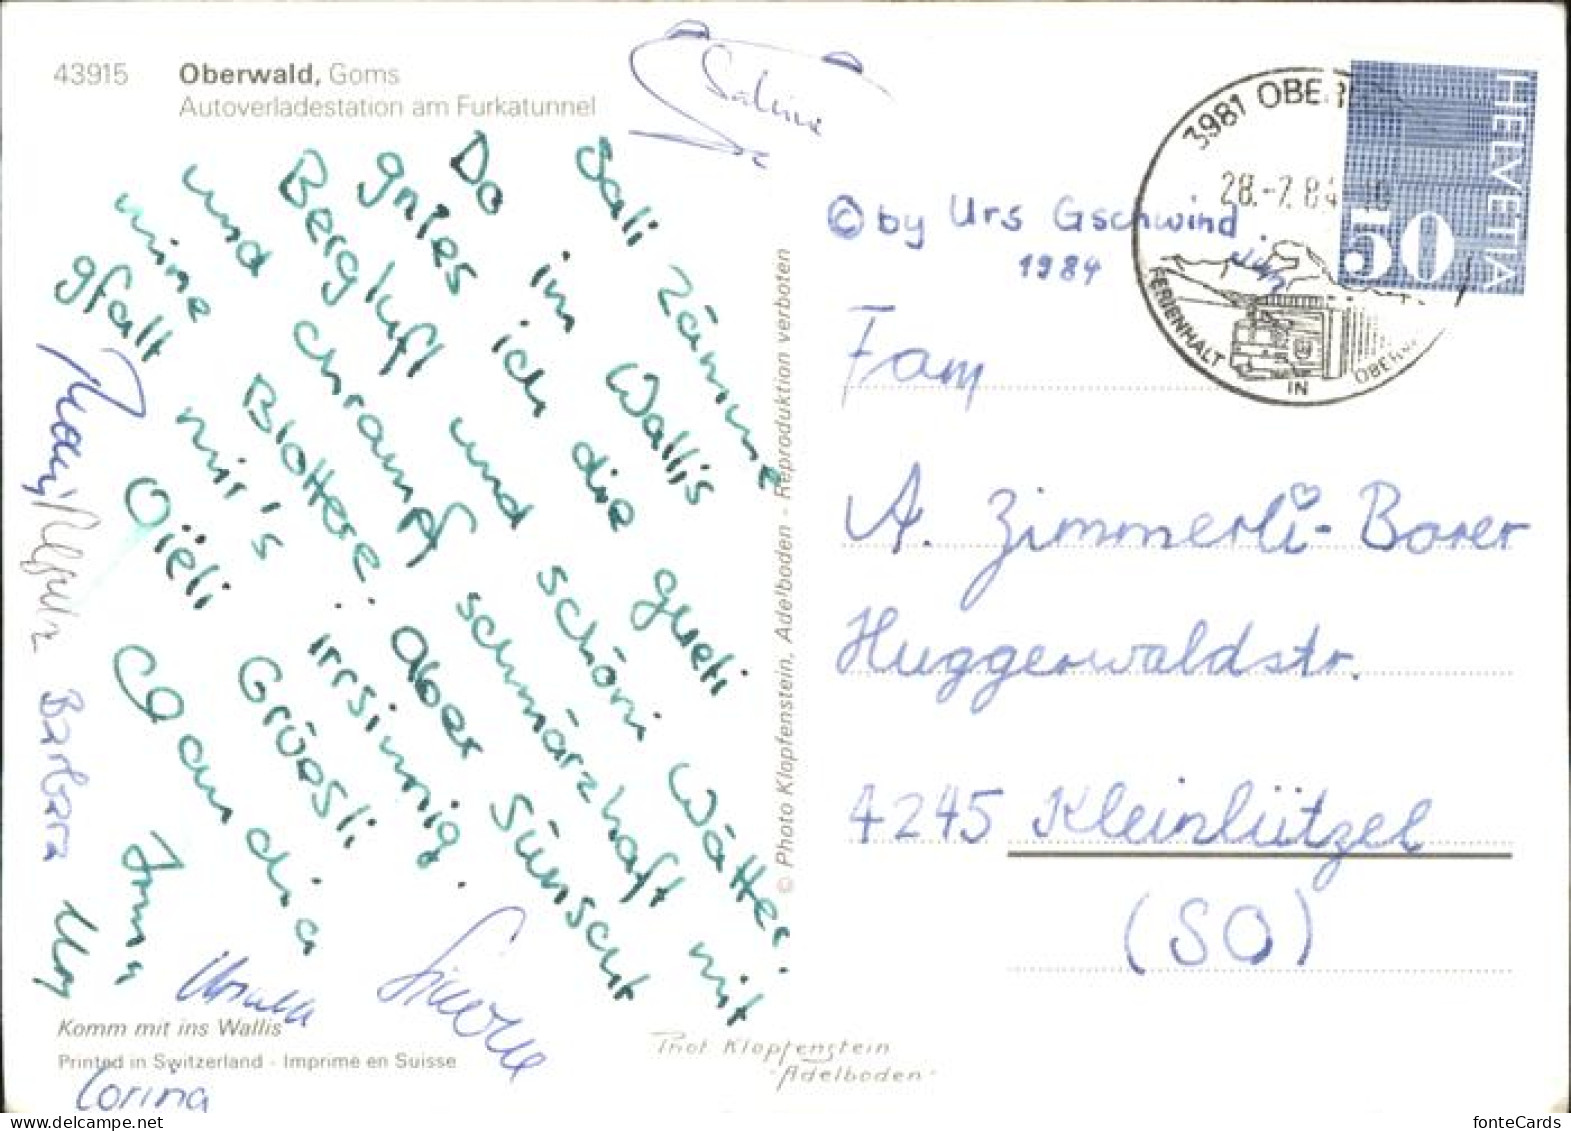 43915 Oberwald, Goms
Autoverladestation am Furkatunnel
Sabine
Sali zämme
Do im Wallis
gniess ich die gueti
Bergluft und schöni Wätter
und chrampf schmärzhaft mit
mine Blottere. Aber sünscht
gfallt mir's irrsinnig.
Oiëli Gröössli
Claudia
Irma
Urs
Barbara
Ursula
Simone
Corina
Komm mit ins Wallis
Printed in Switzerland - Imprimé en Suisse
© Photo Klopfenstein, Adelboden - Reproduktion verboten
Phot Klopfenstein
Adelboden
© by Urs Gschwind
1984
3981 OBER
28.-7.84
FERIENHALT IN OBERW
HELVETIA
50
Fam
A. Zimmerli-Borer
Huggerwaldstr.
4245 Kleinlützel
(SO)
www.delcampe.net
fonteCards